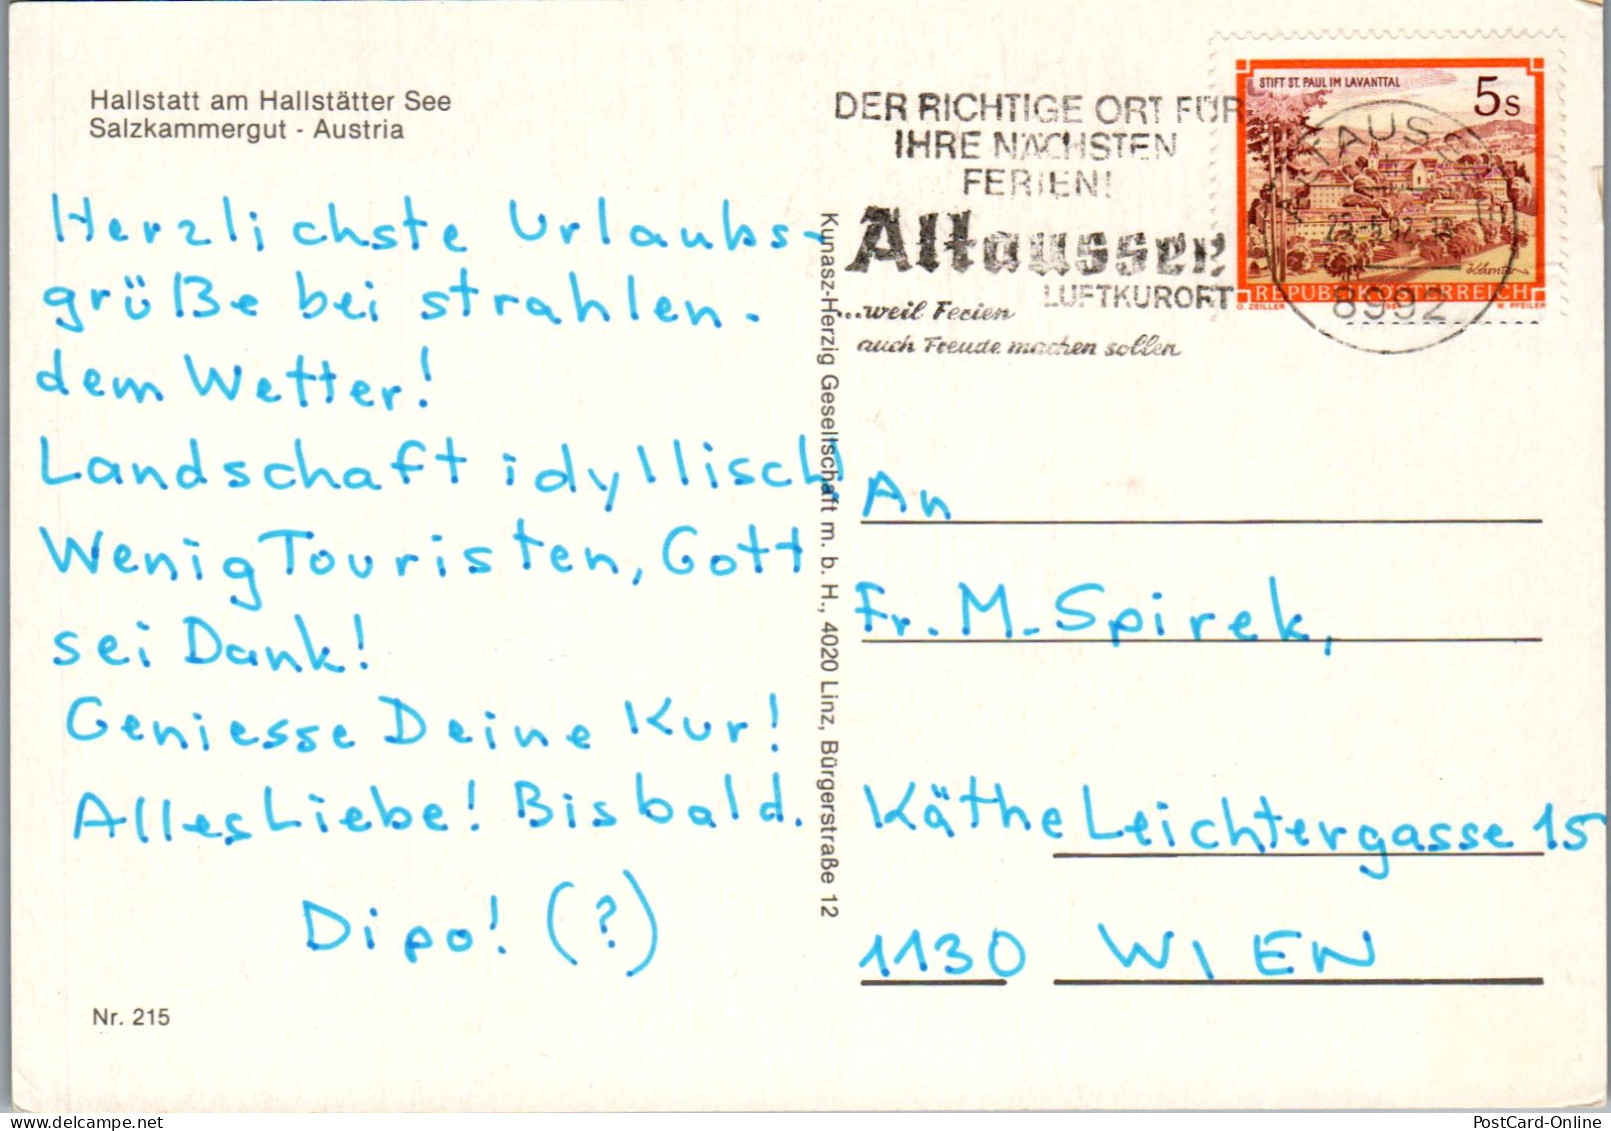 Hallstatt am Hallstätter See
Salzkammergut - Austria
Herzlichste Urlaubs-
grüße bei strahlen-
dem Wetter!
Landschaft idyllisch,
Wenig Touristen, Gott
sei Dank!
Geniesse Deine Kur!
Alles Liebe! Bis bald.
Dipo! (?)
Nr. 215
Kunasz-Herzig Gesellschaft m. b. H., 4020 Linz, Bürgerstraße 12
DER RICHTIGE ORT FÜR
IHRE NÄCHSTEN
FERIEN!
Altaussee
LUFTKURORT
...weil Ferien
auch Freude machen sollen
STIFT ST. PAUL IM LAVANTTAL
5s
ALTAUSSEE
8992
Kärnten
REPUBLIK ÖSTERREICH
O. ZEILLER
W. PFEILER
An
Fr. M. Spirek,
Käthe Leichtergasse 15
1130 WIEN
PostCard-Online